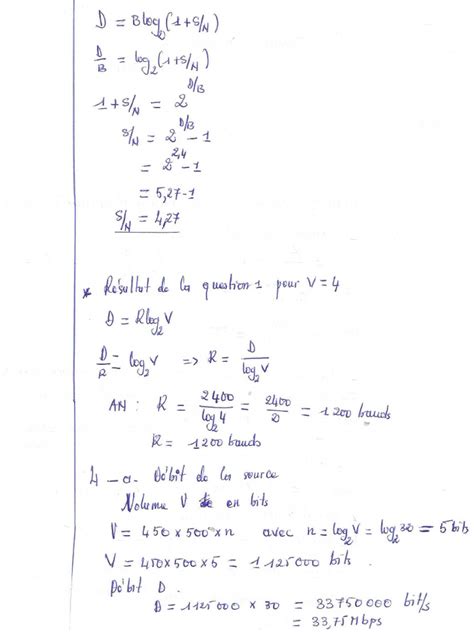 D = Blog₂(1+S/N)
D/B = log₂(1+S/N)
1+S/N = 2^D/B
S/N = 2^D/B - 1
= 2^2,4 - 1
= 5,27-1
S/N = 4,27
* Résultat de la question 1 pour V=4
D = Rlog₂V
D/R = log₂V => R = D/log₂V
AN: R = 2400/log₂4 = 2400/2 = 1200 bauds
R = 1200 bauds
4-a. Débit de la source
Volume V en bits
V = 450×500×n avec n = log₂V = log₂32 = 5 bits
V = 450×500×5 = 1125000 bits.
Débit D.
D = 1125000 × 30 = 33750000 bit/s
= 33,75 Mbps